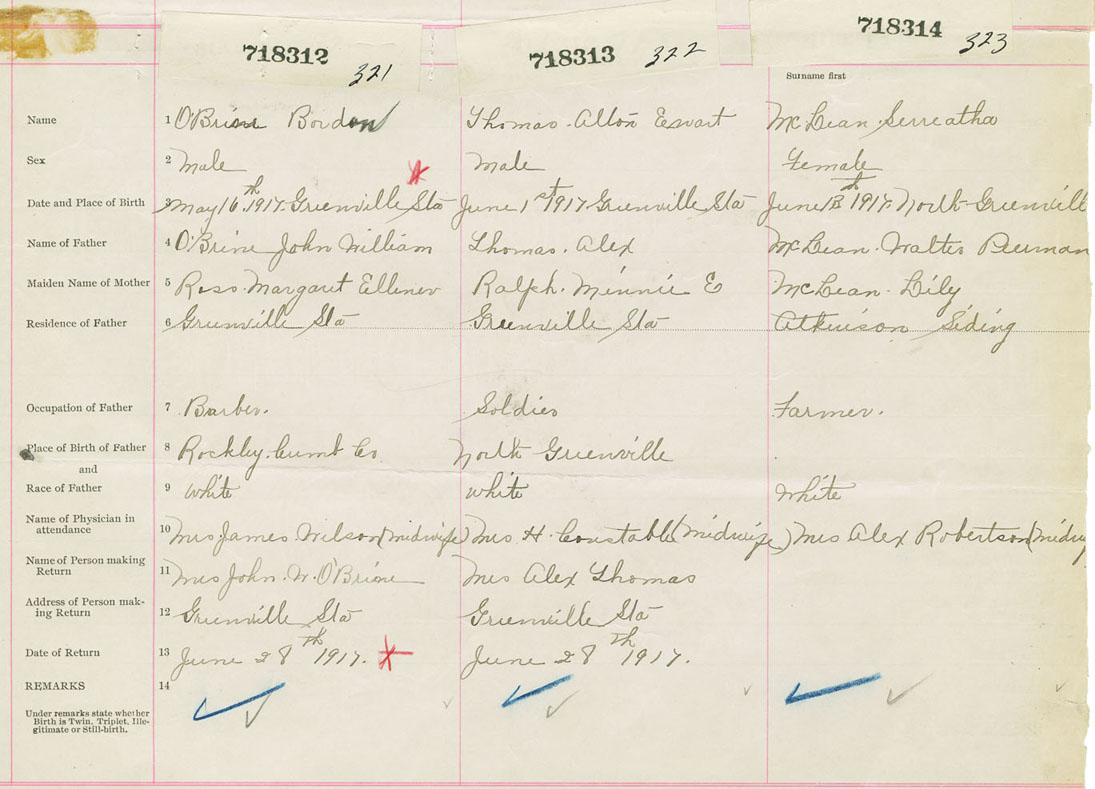 718312 321 718313 322 718314 323
Surname first
Name 1 O'Brine Bordon Thomas. Alton Ewart McLean
Sex 2 Male Male Female
Date and Place of Birth 3 May 16th 1917 Greenville Sta June 1st 1917 Greenville Sta June 1917 North Greenvill
Name of Father 4 O'Brine John William Thomas. Alex McLean. Walter
Maiden Name of Mother 5 Ross. Margaret Ellenor Ralph. Minnie E McLean. Lily
Residence of Father 6 Greenville Sta Greenville Sta Atkinson Siding
Occupation of Father 7 Barber. Soldier Farmer.
Place of Birth of Father 8 Rockley. Cumb Co. North Greenville
and
Race of Father 9 White White White
Name of Physician in
attendance 10 Mrs. James Wilson (midwife) Mrs. H. Constable (Midwife) Mrs Alex Robertson (Midwi
Name of Person making
Return 11 Mrs John. W. O'Brine Mrs Alex Thomas
Address of Person mak-
ing Return 12 Greenville Sta Greenville Sta
Date of Return 13 June 28th 1917. June 28th 1917.
REMARKS 14
Under remarks state whether
Birth is Twin, Triplet, Ille-
gitimate or Still-birth.